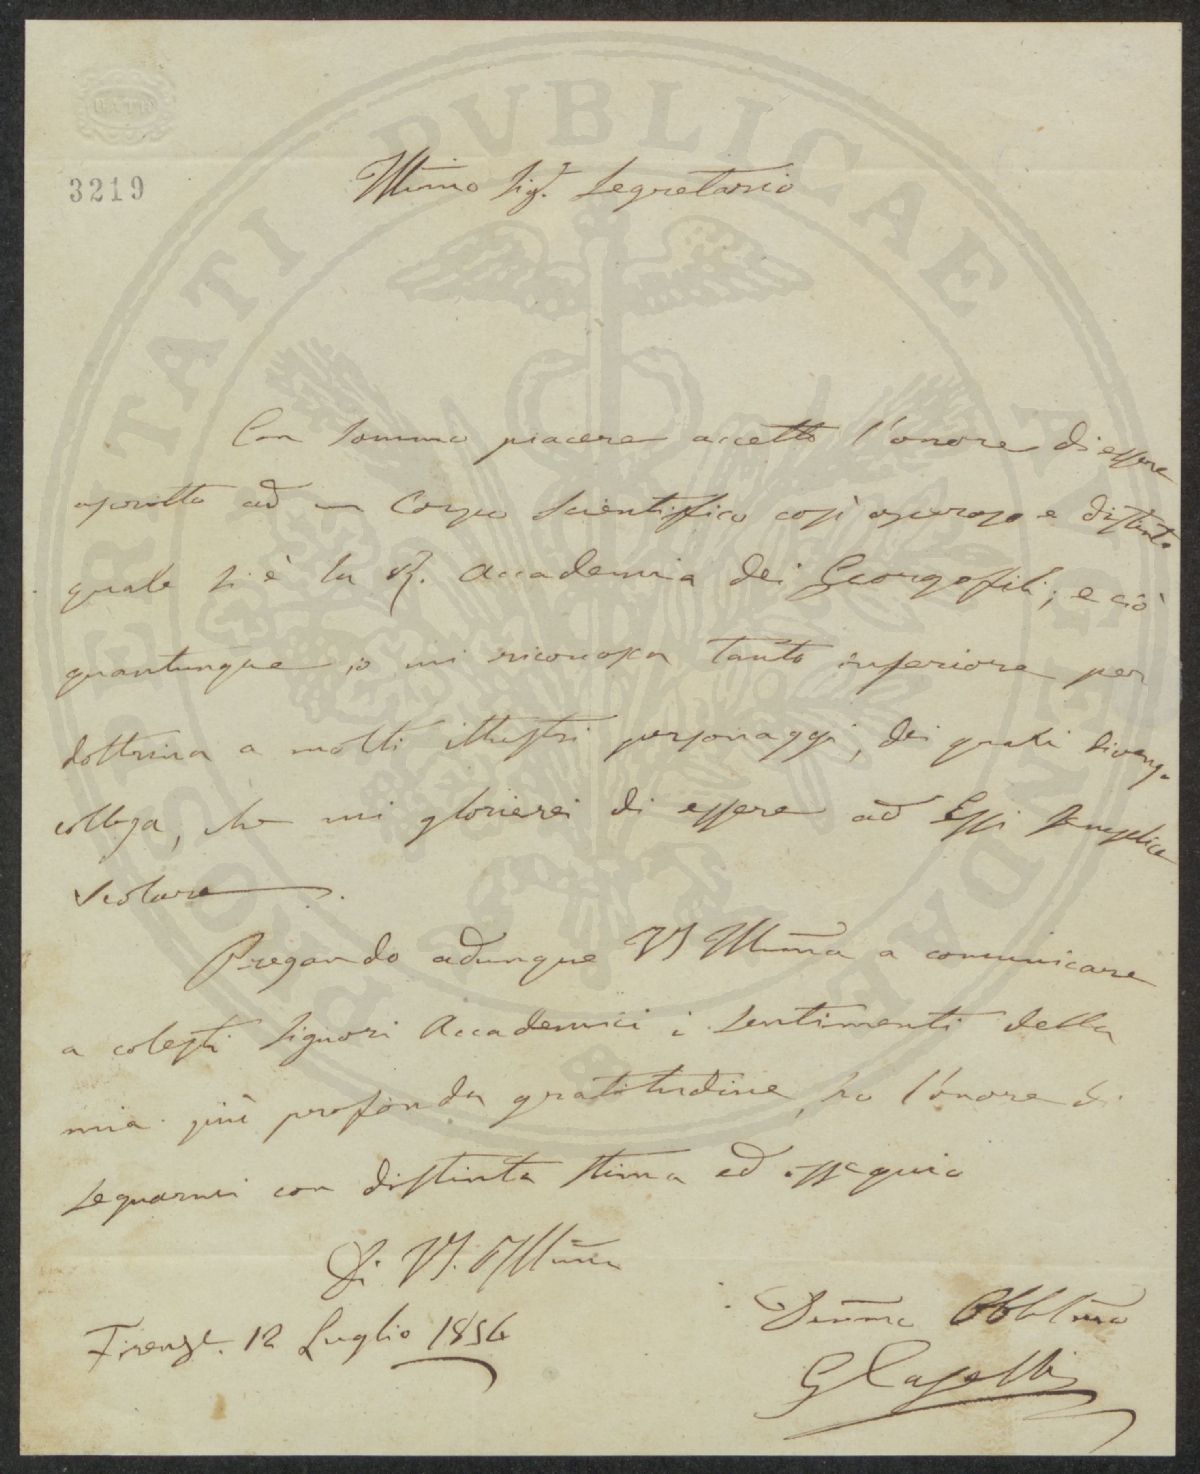 BATH
3219
Illmo Sigr. Segretario
Con sommo piacere accetto l'onore di essere
ascritto ad un Corpo Scientifico così operoso e distinto
quale si è la R. Accademia dei Georgofili; e ciò
quantunque io mi riconosca tanto inferiore per
dottrina a molti illustri personaggi, dei quali divengo
collega, che mi glorierei di essere ad Essi semplice
scolare.
Pregando adunque VS Illma a comunicare
a cotesti Signori Accademici i sentimenti della
mia più profonda gratitudine, ho l'onore di
segnarmi con distinta stima ed ossequio
Di VS. Illma
Firenze. 12 Luglio 1854
Devmo Obblmo
G Caselli
PROSPERITATI PVBLICAE AVGENDAE